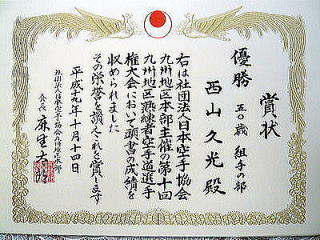 賞状
優勝 五〇歳 組手の部
西山久光殿
右は社団法人日本空手協会
九州地区本部主催の第十回
九州地区熟練者空手道選手
権大会において頭書の成績を
収められました
その栄誉を讃えこれを賞します
平成十九年十月十四日
社団法人日本空手協会九州地区本部
会長